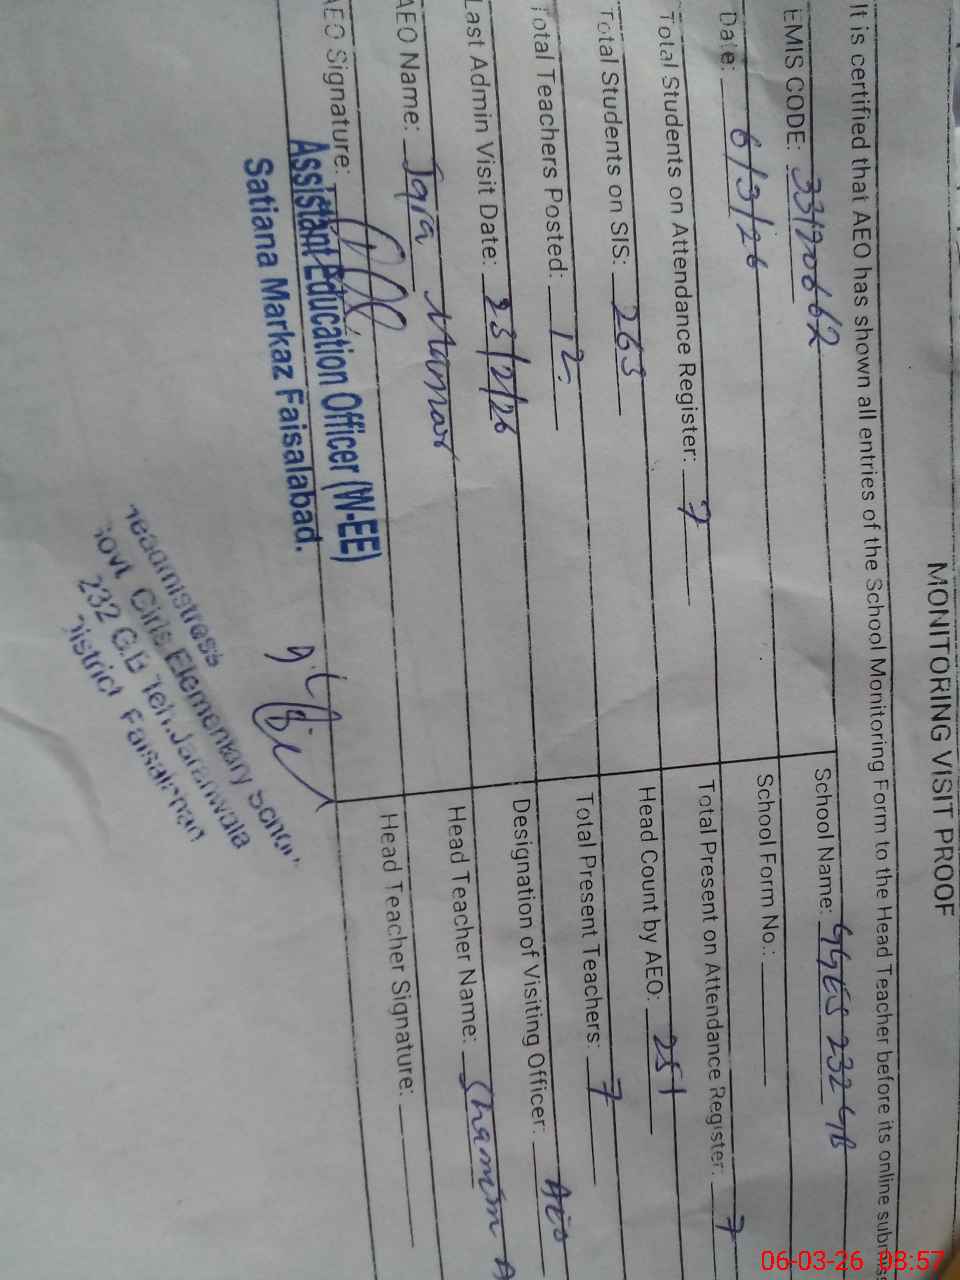 MONITORING VISIT PROOF
It is certified that AEO has shown all entries of the School Monitoring Form to the Head Teacher before its online submis
EMIS CODE: 33170662 School Name: GGES 232 GB
Date: 6/3/26 School Form No.:
Total Students on Attendance Register: 7 Total Present on Attendance Register: 7
Total Students on SIS: 265 Head Count by AEO: 251
Total Teachers Posted: 12 Total Present Teachers: 7
Last Admin Visit Date: 23/2/26 Designation of Visiting Officer: AEO
AEO Name: Iqra Head Teacher Name: Shamim A
AEO Signature: Head Teacher Signature:
Assistant Education Officer (W-EE)
Satiana Markaz Faisalabad.
Headmistress
Govt. Girls Elementary School
232 G.B Teh. Jaranwala
District Faisalabad
06-03-26 08:57